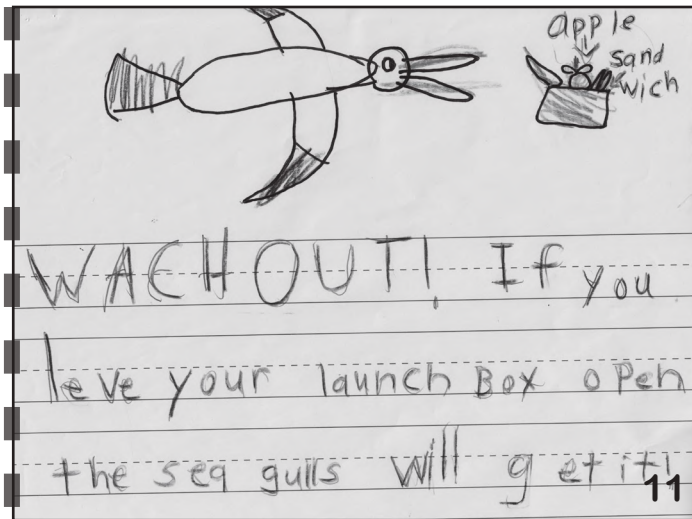 apple
sand
wich
WACH OUT! If you
leve your launch Box open
the sea gulls will get it!
11